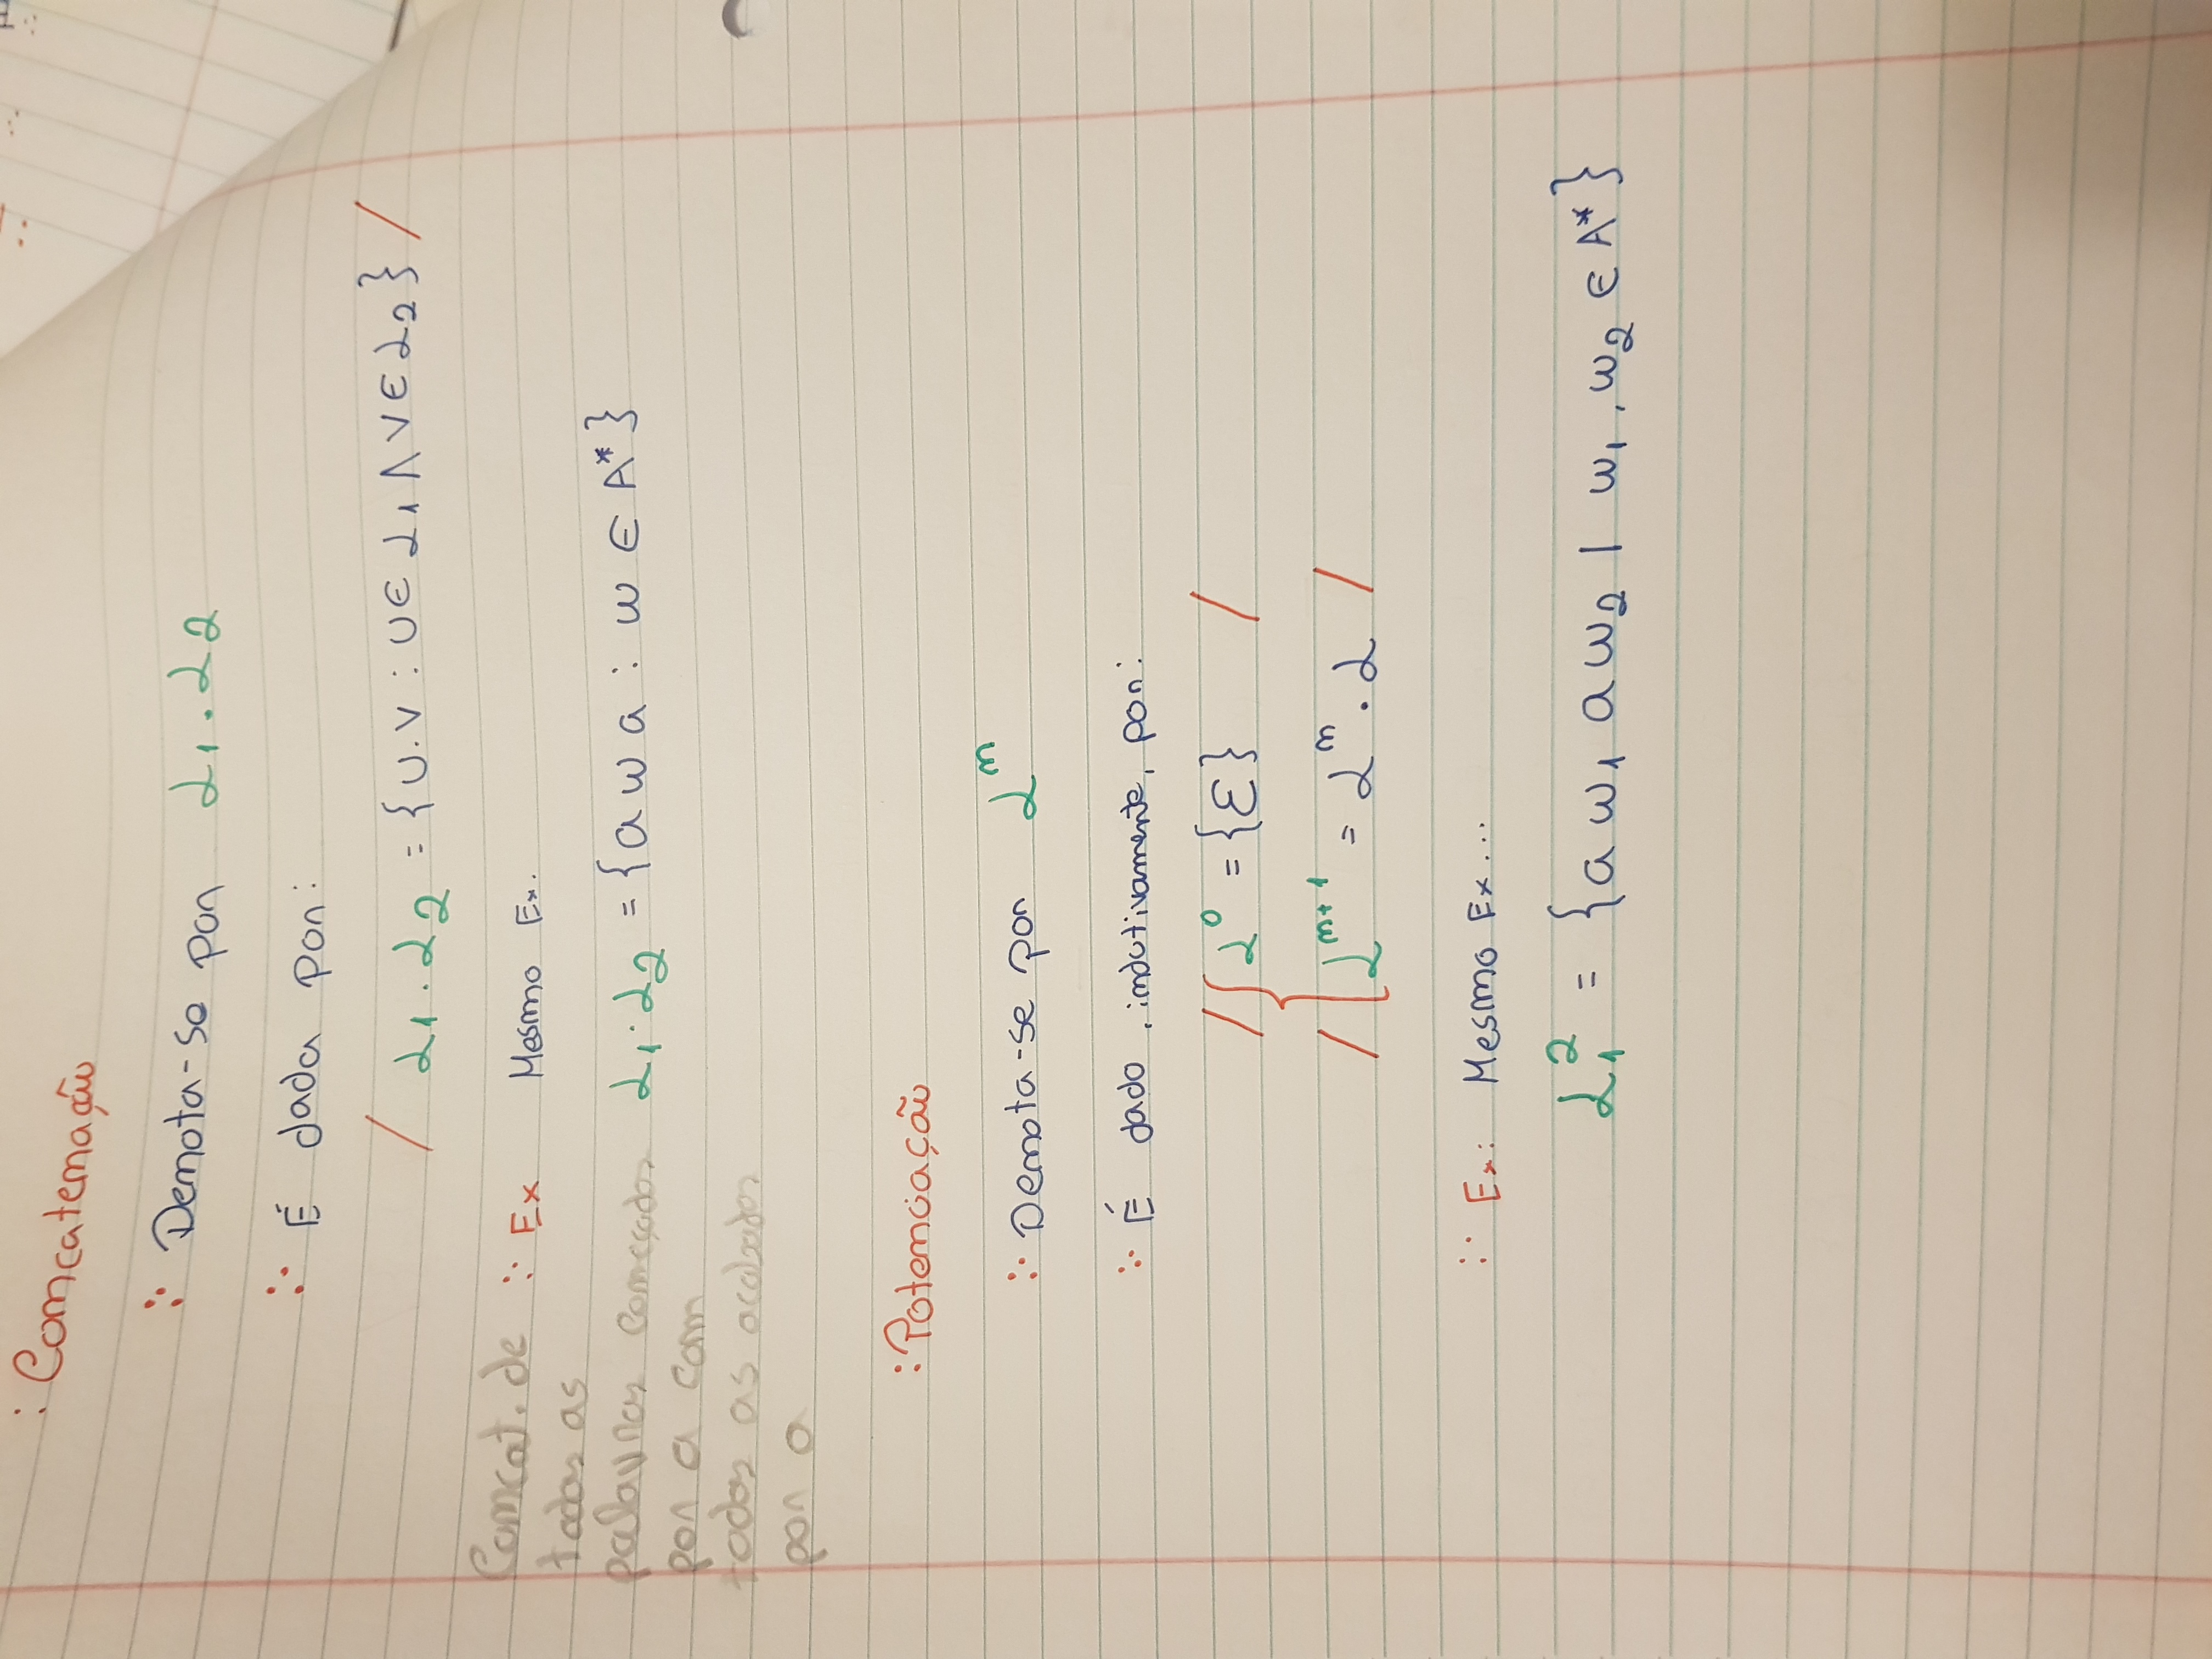 : Concatenação
∵ Denota-se por L₁.L₂
∵ É dada por:
/ L₁.L₂ = {u.v : u ∈ L₁ ∧ v ∈ L₂} /
Concat. de
todas as
palavras começadas
por a com
todas as acabadas
por a
∵ Ex Mesmo Ex.
L₁.L₂ = {a w a : w ∈ A*}
: Potenciação
∵ Denota-se por Lⁿ
∵ É dado, indutivamente, por:
/ { L⁰ = {ε} /
/ Lⁿ⁺¹ = Lⁿ . L /
∵ Ex: Mesmo Ex...
L₁² = {a w₁ a w₂ | w₁, w₂ ∈ A*}